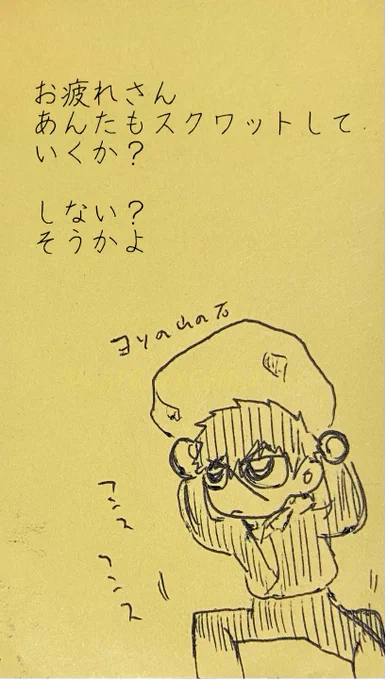 お疲れさん
あんたもスクワットして
いくか？
しない？
そうかよ
ヨソの山の石
フンス
フンス